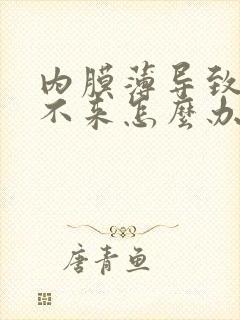 内膜薄导致
不来怎麽办
唐青鱼